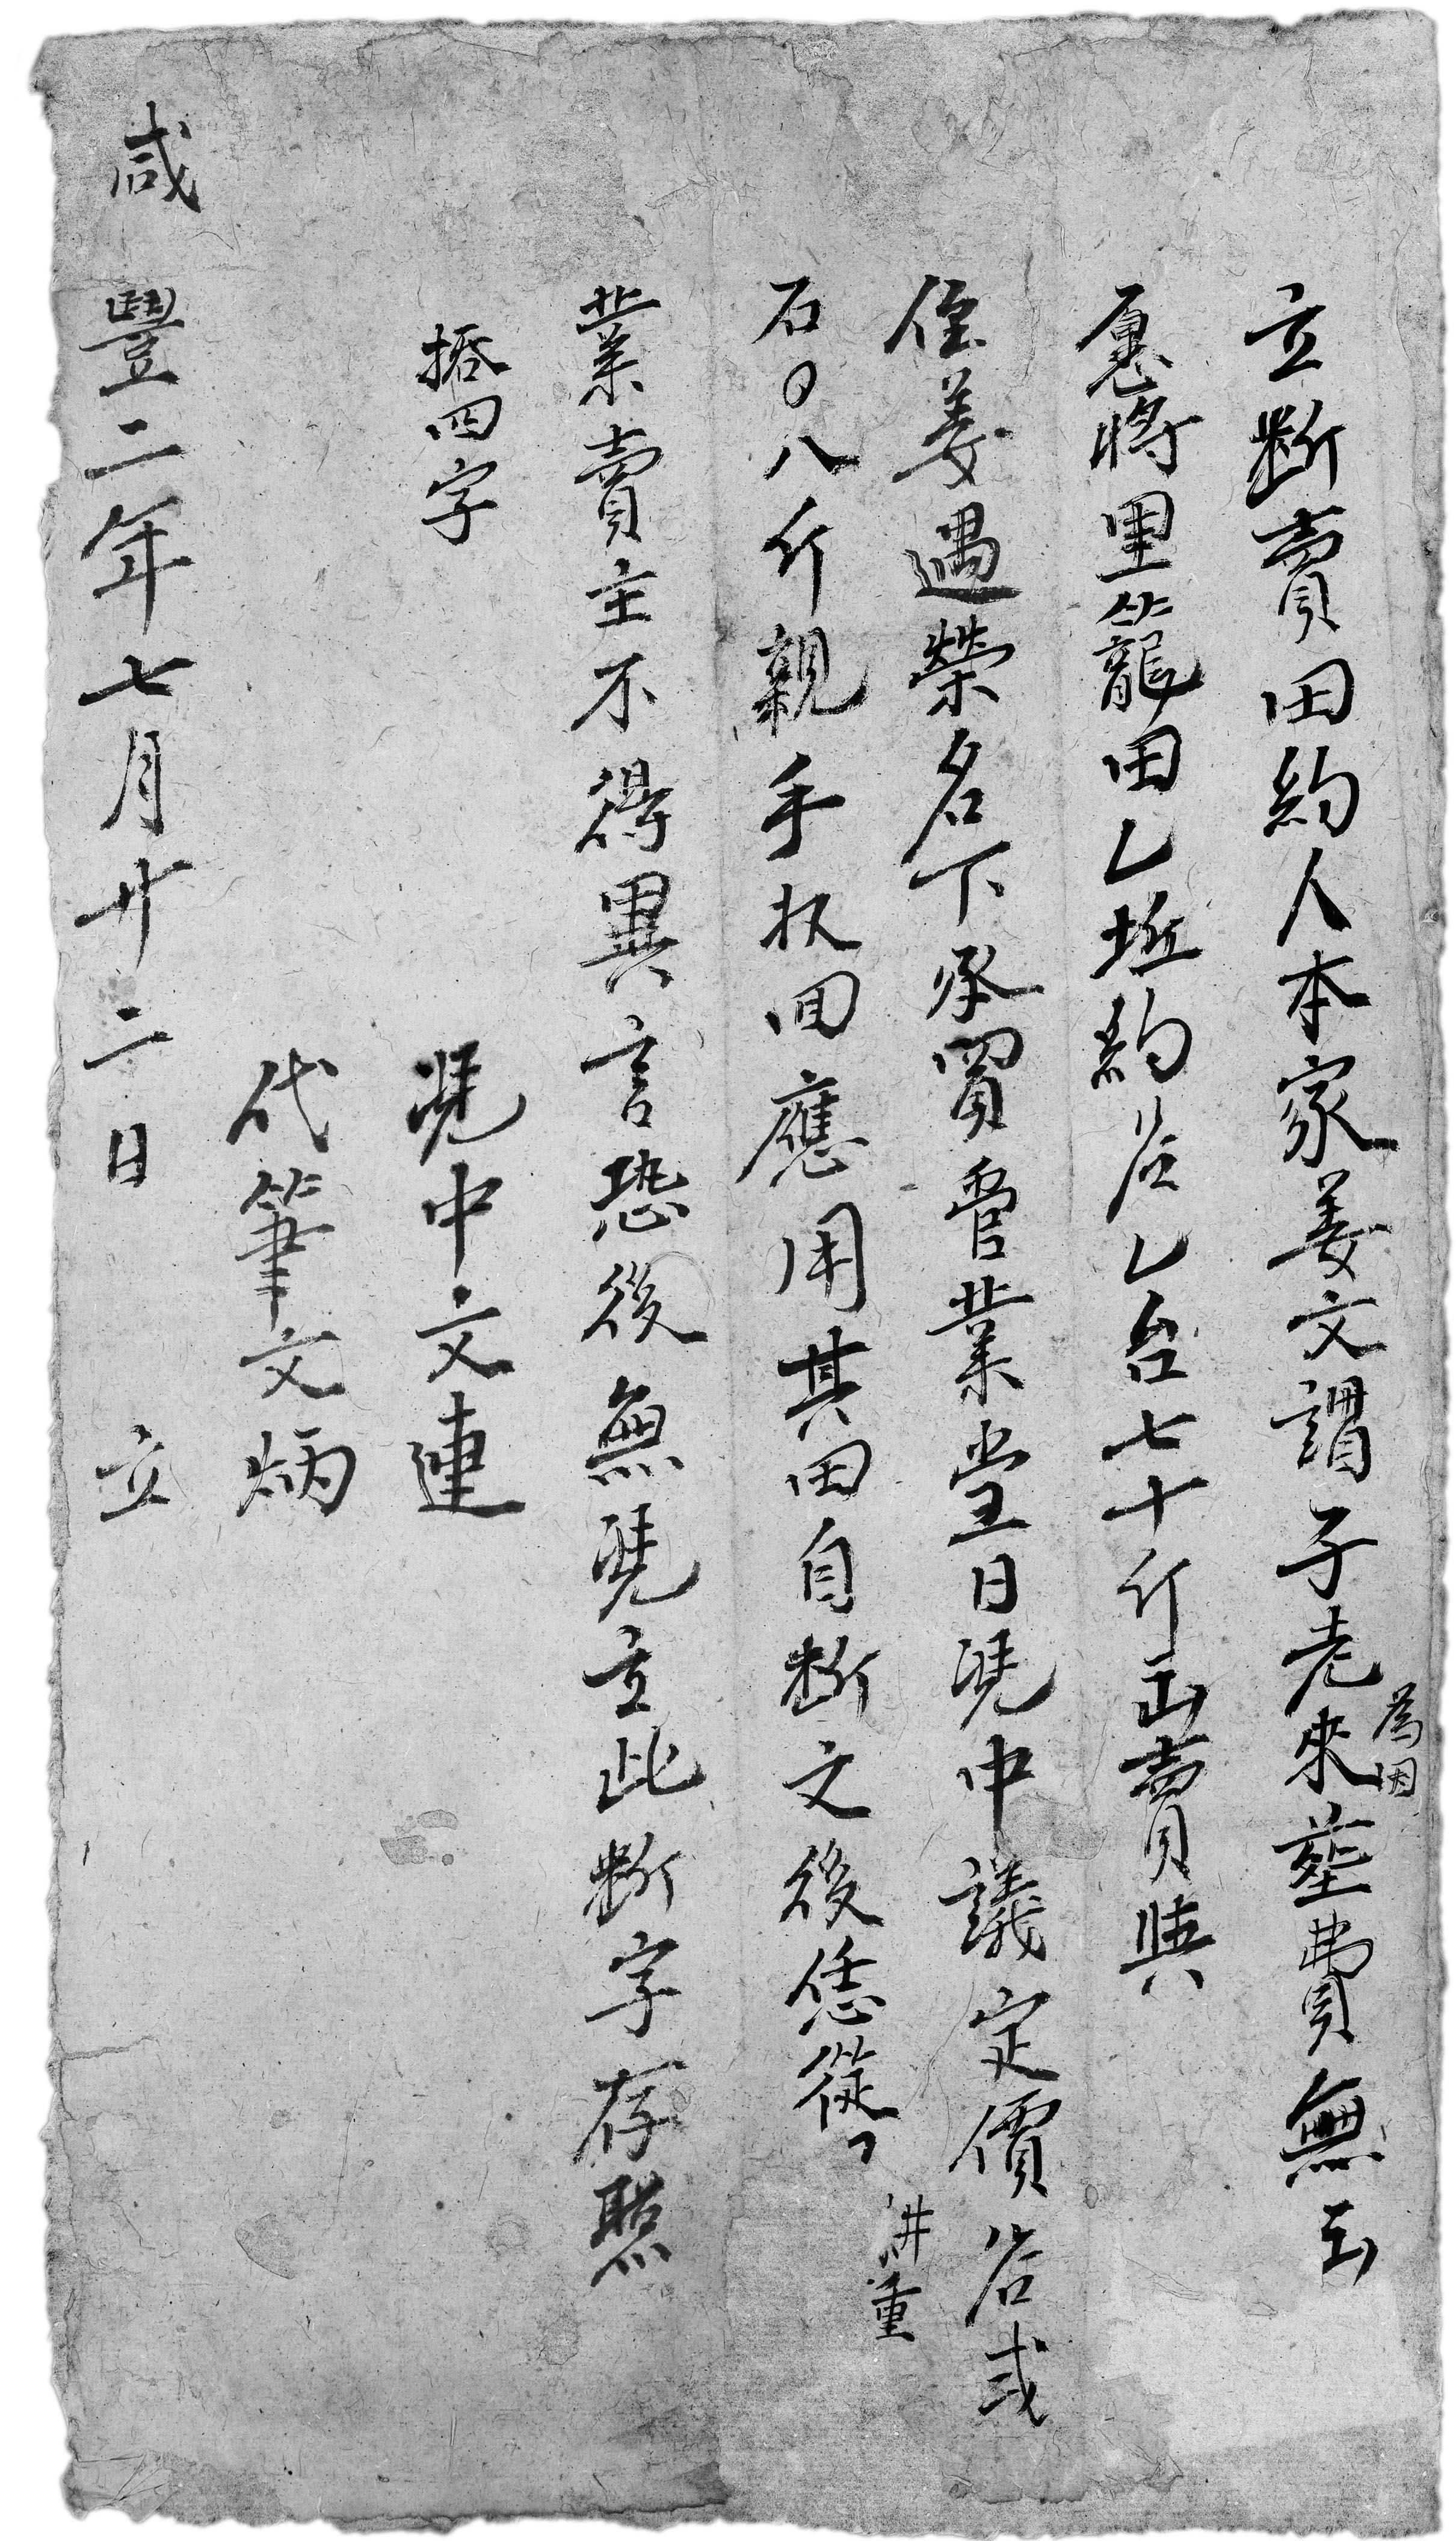 立断賣田約人本家姜文謂子老來為因塟費無出
愿將里籠田乚坵約谷乚石七十斤出賣與
侄姜遇榮名下承買管業當日凴中議定價谷弍
石〇八斤親手收回應用其田自断之後恁從耕重
業賣主不得異言恐後無凴立此断字存照
捂四字
凴中文連
代筆文炳
咸豐二年七月廿二日 立